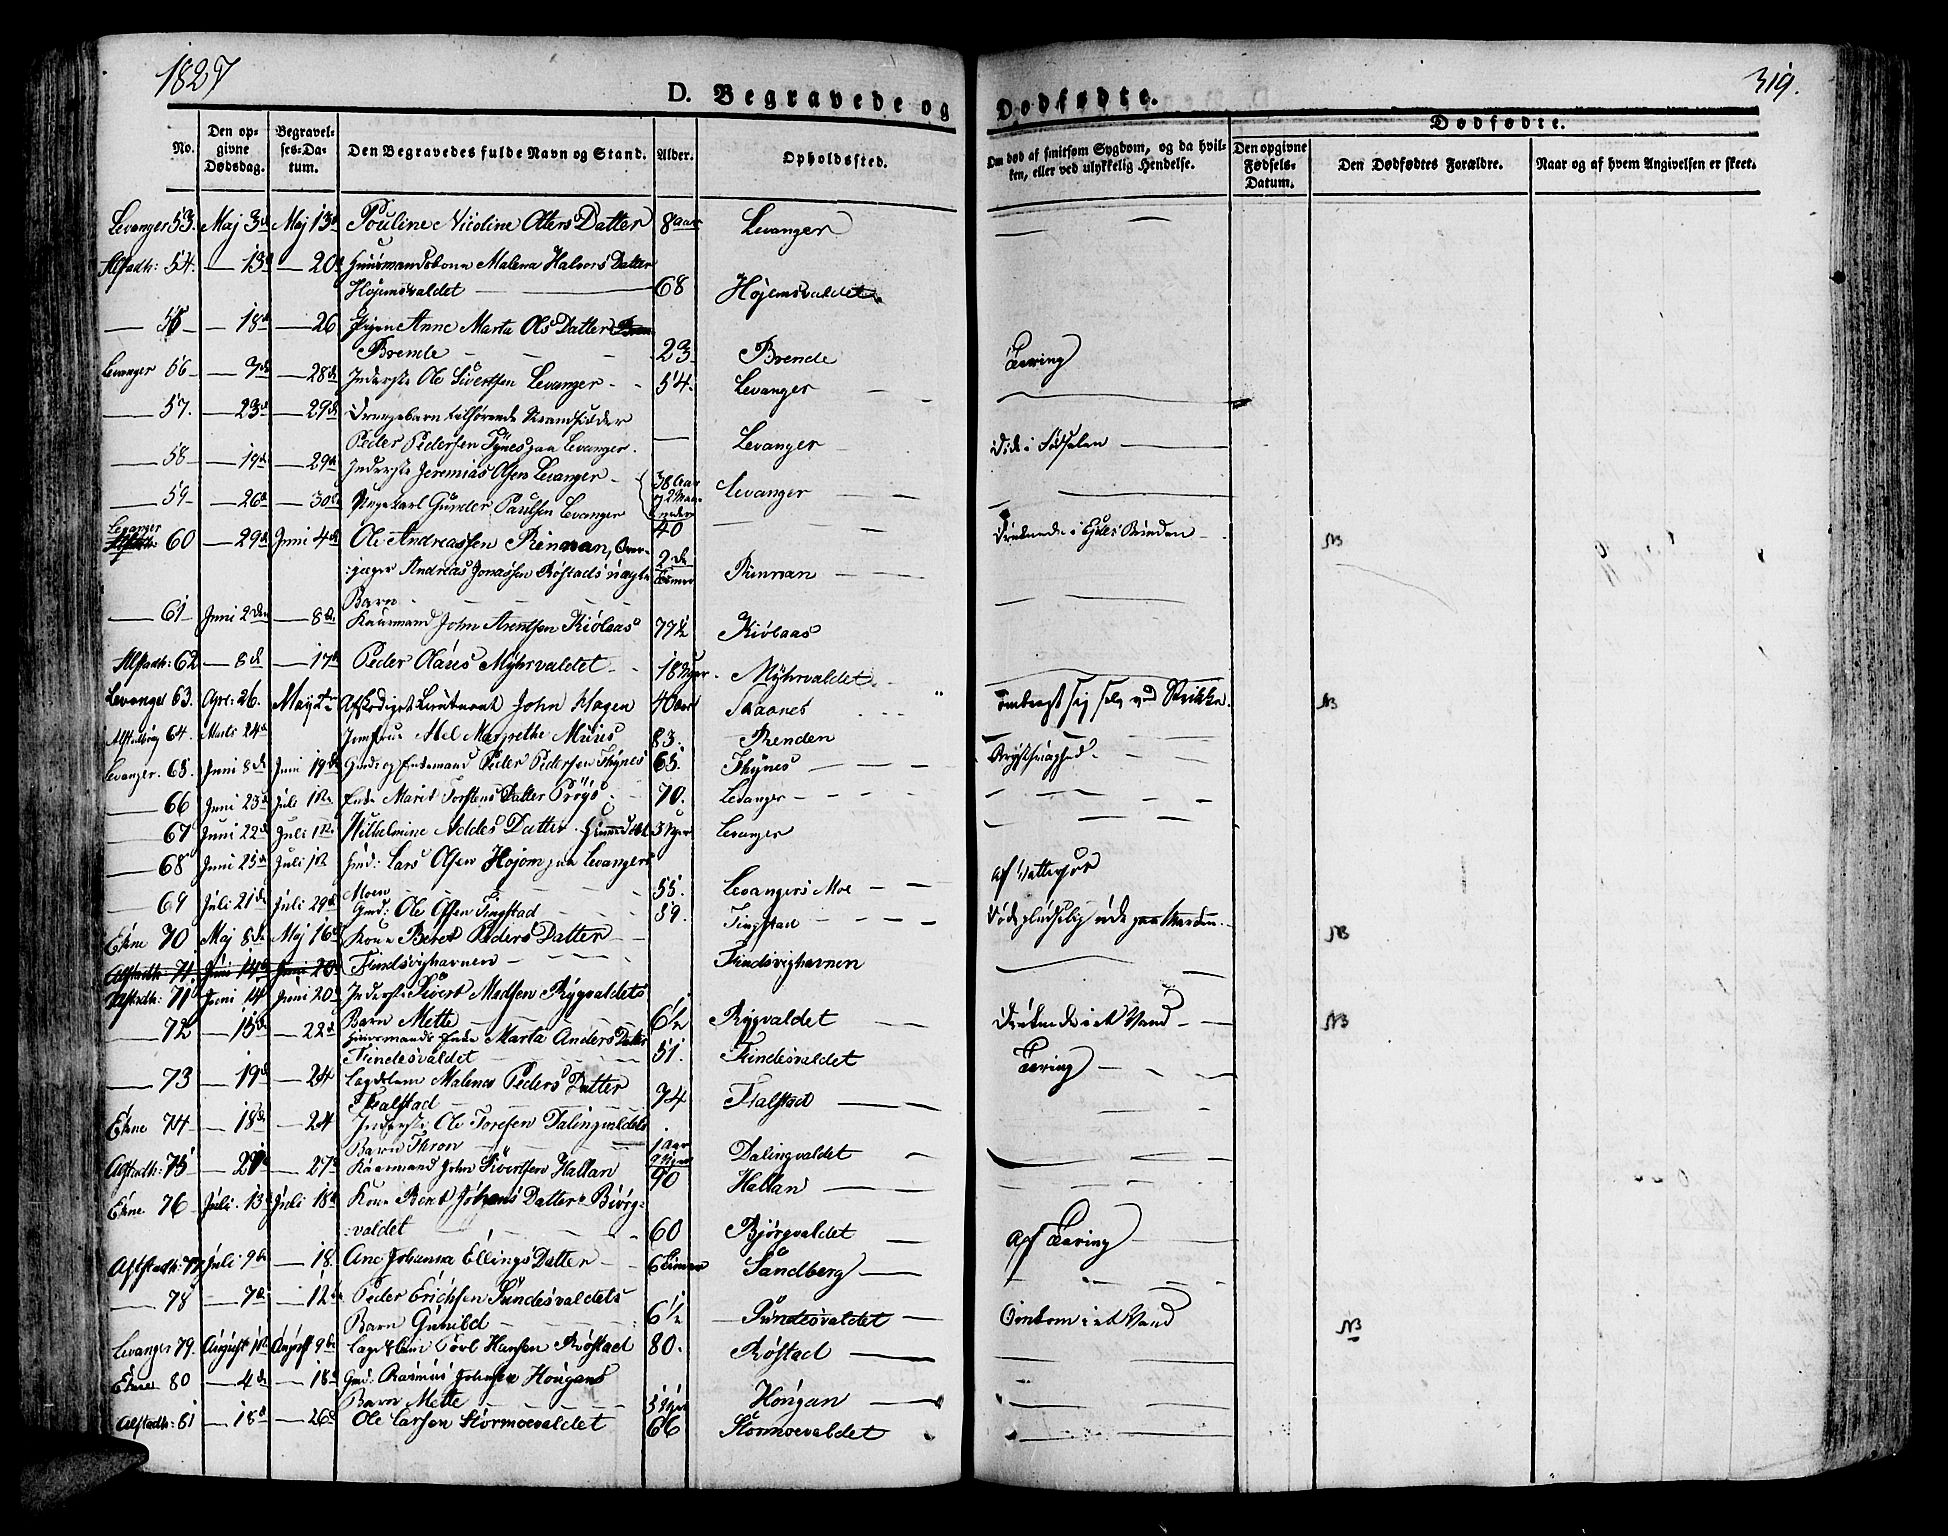 1827
319.
D. Begravede og Dødfødte.
Dødfødte.
No.
Den opgivne Dødsdag.
Begravelses-Datum.
Den Begravedes fulde Navn og Stand.
Alder.
Opholdssted.
Om død af smitsom Sygdom, og da hvilken, eller ved ulykkelig Hendelse.
Den opgivne Fødsels-Datum.
Den Dødfødtes Forældre.
Naar og af hvem Angivelsen er skeet.
Levanger 53. Maj 3d Maj 13d Pouline Nicoline Oters Datter 8 aar Levanger
Alstadh: 54. — 13d — 20d Huusmandskone Malena Halvors Datter
Hojemsvaldet — 68 Höjemsvaldet
— 55 — 18d — 26 Pigen Anne Marta Ols Datter
Brende 23 Brende Tæring
Levanger 56 — 7de — 28de Inderste Ole Sivertsen Levanger 54. Levanger
— 57. — 23d — 29de Drengebarn tilhørende Strandsidder
Peder Pedersen Tynes paa Levanger — Levanger Død i Fødselen
— 58 — 19de — 29de Inderste Jeremias Olsen Levanger 38 Aar
— 59 — 26d — 30d Ungkarl Gunder Paulsen Levanger 40 Levanger
Levanger 60 — 29de Juni 4de Ole Andreassen Rinnan, Over-
jæger Andreas Jonassen Röstads uægte Rinnan
Barn
— 61 Juni 2den — 8de Kaarmand John Arentsen Kiölaas 77½ Kiölaas
Alstadh: 62 — 8d — 17d Peder Olaus Myhrvaldet 18 Uger Myhrvaldet
Levanger 63. Apr: 26. Maj Afskediget Lieutenant John Hagen 40 aar Skaanes ombragt sig selv ved Strikke NB
64. Marts 24d Jomfrue Abel Margrethe Müüs 83. Renden
Levanger. 65. Juni 8de Juni 19de Gmd og Enkemand Peder Pedersen Thynes 65. Thynes Brystsvaghed
— 66 Juni 23d Juli 1ste Enke Marit Torstens Datter Pröys 70. Levanger
— 67 Juni 22de Juli 1ste Wilhelmine Addes Datter 3 Uger Levanger
— 68 Juni 23de Juli 1st Gmd: Lars Olsen Hojom paa Levangers
Moen 55. Levangers Moe
— 69 Juli 21de Juli 29de Gmd: Ole Olsen Tingstad 59. Tingstad Døde pludselig ude paa Marken NB
Ekne 70 Maj 8de Maj 16d Kone Beret Peders Datter
Findsvighavnen Findsvighavnen
Alstadh: 71. Juni 14d Juni 20.
Alstadh: 71 Juni 14 Juni 20d Inderste Sivert Madsen Rygvaldets
Barn Mette 6½ Rygvaldet Druknede i et Vand NB
— 72 — 15de — 22d Huusmands Enke Marta Anders Datter
Findesvaldet 51. Findesvaldet Tæring
— 73 — 19d — 24 Lægdslem Malenes Peders Datter
Fialstad 74 Fialstad
Ekne 74 — 18de — 24 Inderste Ole Toresen Dalingvaldets
Barn Thron 1 aar Dalingvaldet
Alstadh: 75 — 27d Kaarmand John Sivertsen Hallan 90 Hallan
Ekne 76 Juli 13 Juli 18d Kone Beret Johans Datter Biörg-
valdet 60 Bjørgvaldet Af Tæring
Alstadh: 77 Juli 9de — 18. Ane Johanna Ellings Datter 6 Timer Sandberg
— 78 — 7de — 12te Peder Erichsen Sundesvaldets
Barn Gunild 6½ Sundesvaldet Omkom i et Vand NB
Levanger 79. August 1st August 9de Lægdslem Hansen Röstad 80. Röstad
Ekne 80 — 4de — 18d Gmd. Rasmus Johnsen Hougans
Barn Mette Hougan
Alstadh: 81 — 18d — 26d Ole Larsen Stormoevaldet 66 Stormoevaldet